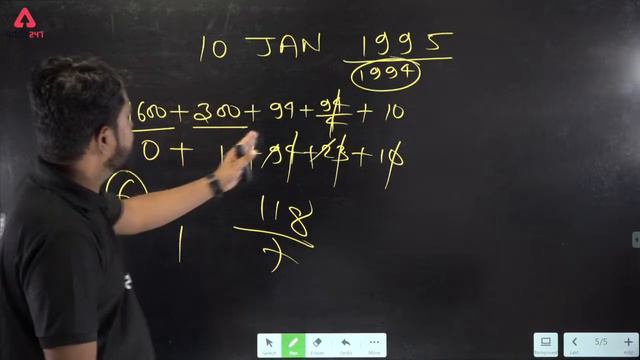 10 JAN 1995
1994
1600 + 300 + 94 + 94/4 + 10
0 + 1 + 94 + 23 + 10
6
1 118/7
Select Pen Eraser Undo More
Background Last 5/5